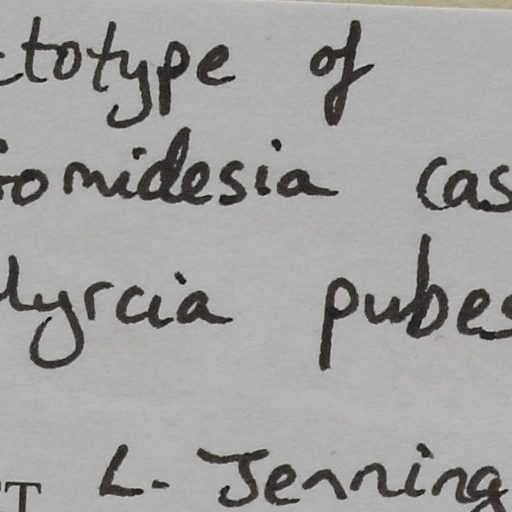 ctotype of
iomidesia cas
Myrcia pubes
ET L. Jenning